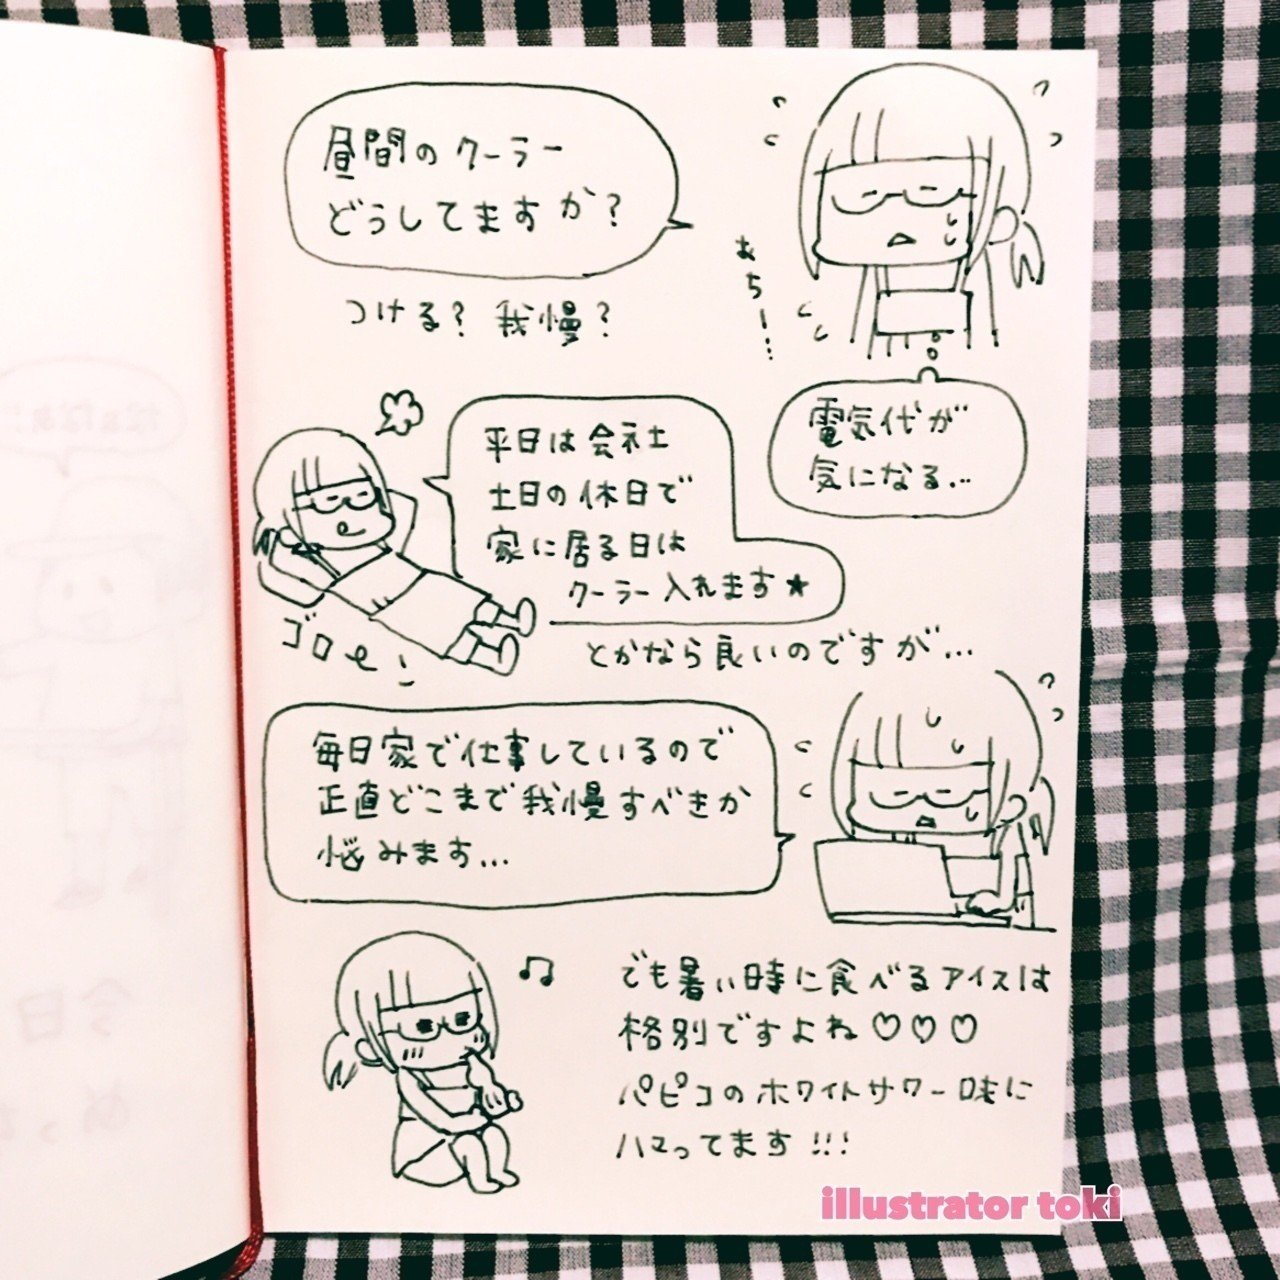 昼間のクーラー
どうしてますか?
つける? 我慢?
あちー…
電気代が
気になる…
平日は会社
土日の休日で
家に居る日は
クーラー入れます★
ゴロセ!
とかなら良いのですが…
毎日家で仕事しているので
正直どこまで我慢すべきか
悩みます…
でも暑い時に食べるアイスは
格別ですよね♡♡♡
パピコのホワイトサワー味に
ハマってます!!!
illustrator toki